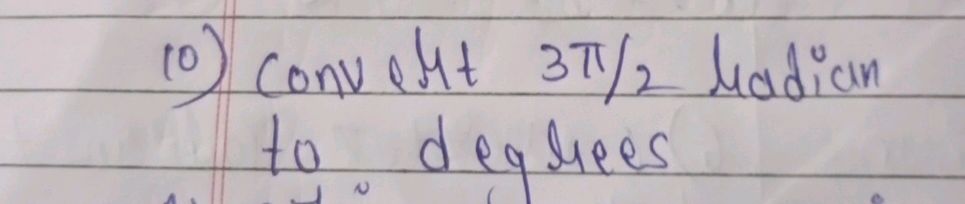 10) Convert 3π/2 radian
to degrees